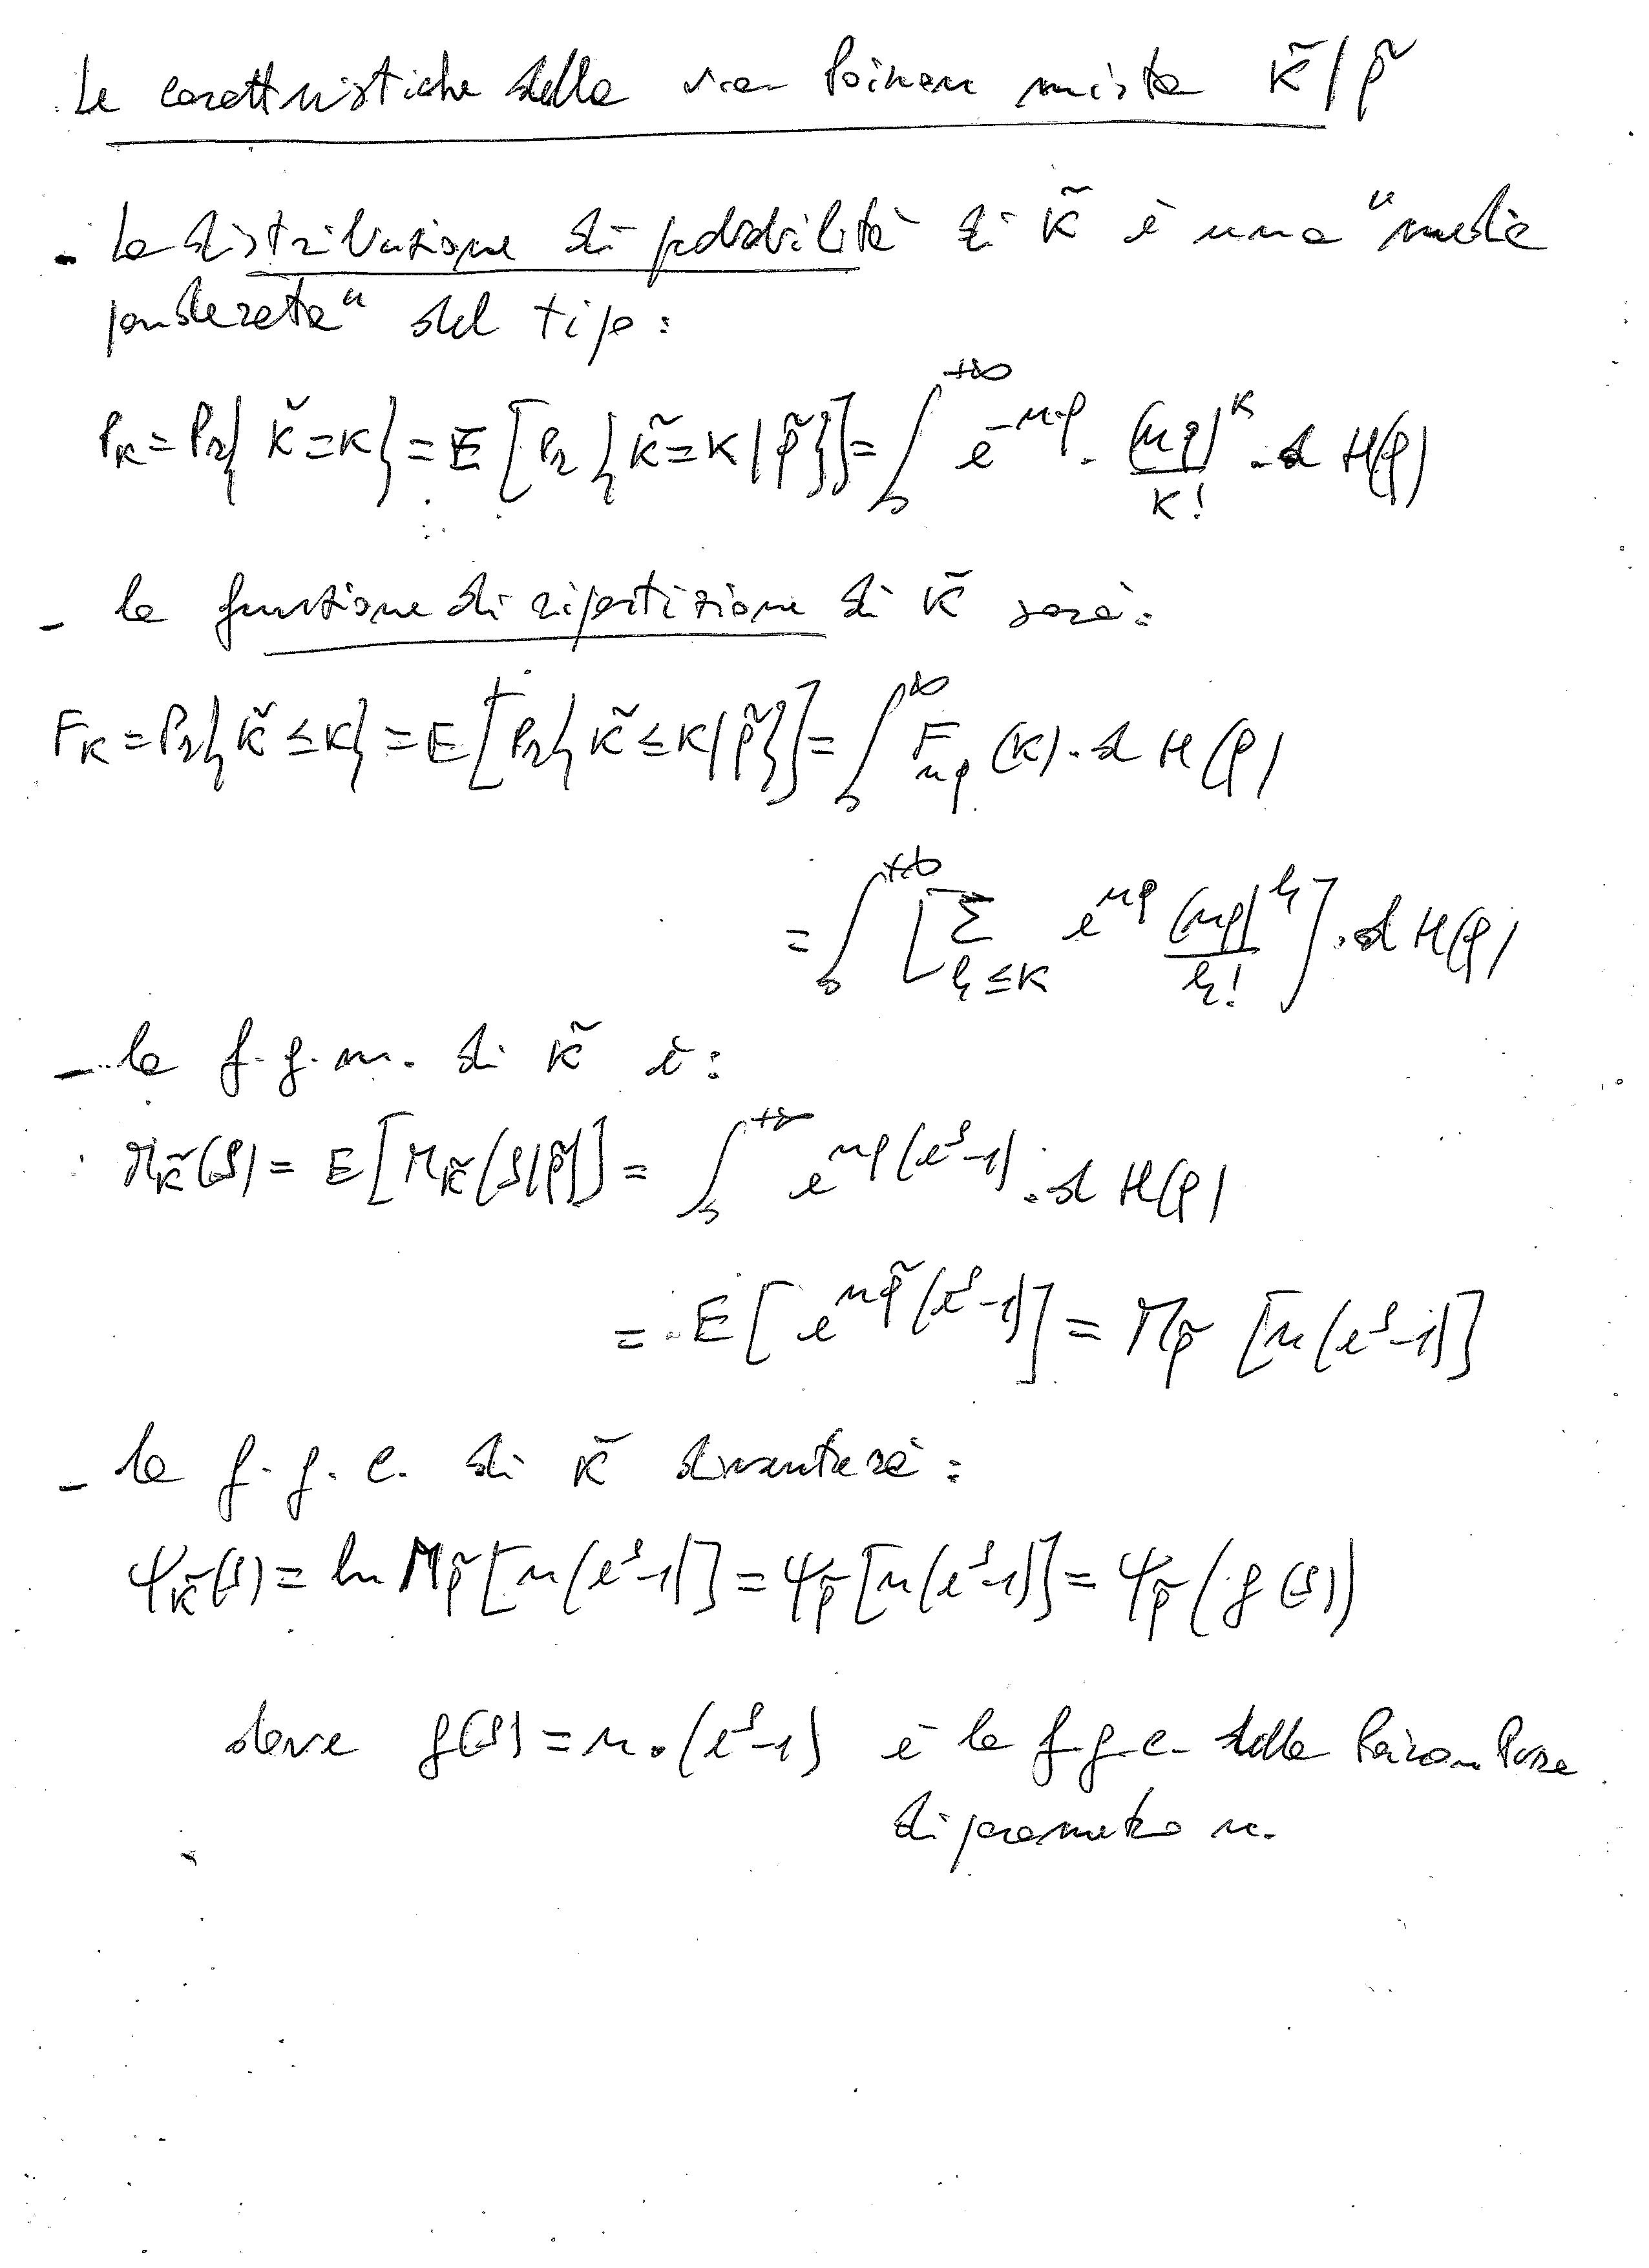 Le caratteristiche della v.a. Poisson mista K̃/ρ̃
- la distribuzione di probabilità di K̃ è una "media
ponderata" del tipo:
P_K = Pr{K̃=K} = E[Pr{K̃=K/ρ̃}] = ∫_0^{+∞} e^{-nρ} · (nρ)^K/K! · d H(ρ)
- la funzione di ripartizione di K̃ sarà:
F_K = Pr{K̃≤K} = E[Pr{K̃≤K/ρ̃}] = ∫_0^∞ F_{nρ}(K) · d H(ρ)
= ∫_0^{+∞} [Σ_{h≤K} e^{nρ} (nρ)^h/h!] · d H(ρ)
- la f.g.m. di K̃ è:
M_K̃(s) = E[M_K̃(s/ρ̃)] = ∫_0^{+∞} e^{nρ(e^s-1)} · d H(ρ)
= E[e^{nρ̃(e^s-1)}] = M_ρ̃ [n(e^s-1)]
- la f.g.c. di K̃ diventerà:
Ψ_K̃(s) = ln M_ρ̃[n(e^s-1)] = Ψ_ρ̃[n(e^s-1)] = Ψ_ρ̃(g(s))
dove g(s) = n·(e^s-1) è la f.g.c. della Poisson Pura
di parametro n.